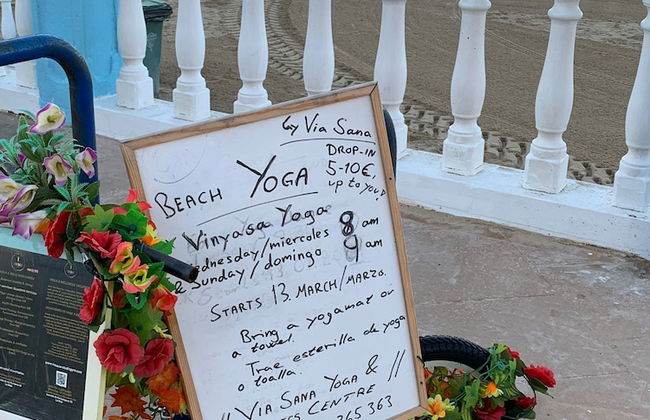 by Via Sana
DROP-IN
5-10€,
up to you!
BEACH YOGA
Vinyasa Yoga
dnesday/miercoles 8 am
& Sunday/domingo 9 am
STARTS 13. MARCH/MARZO.
Bring a yogamat or
a towel.
Trae esterilla de yoga
o toalla.
// VIA SANA YOGA & //
ES CENTRE
365 363